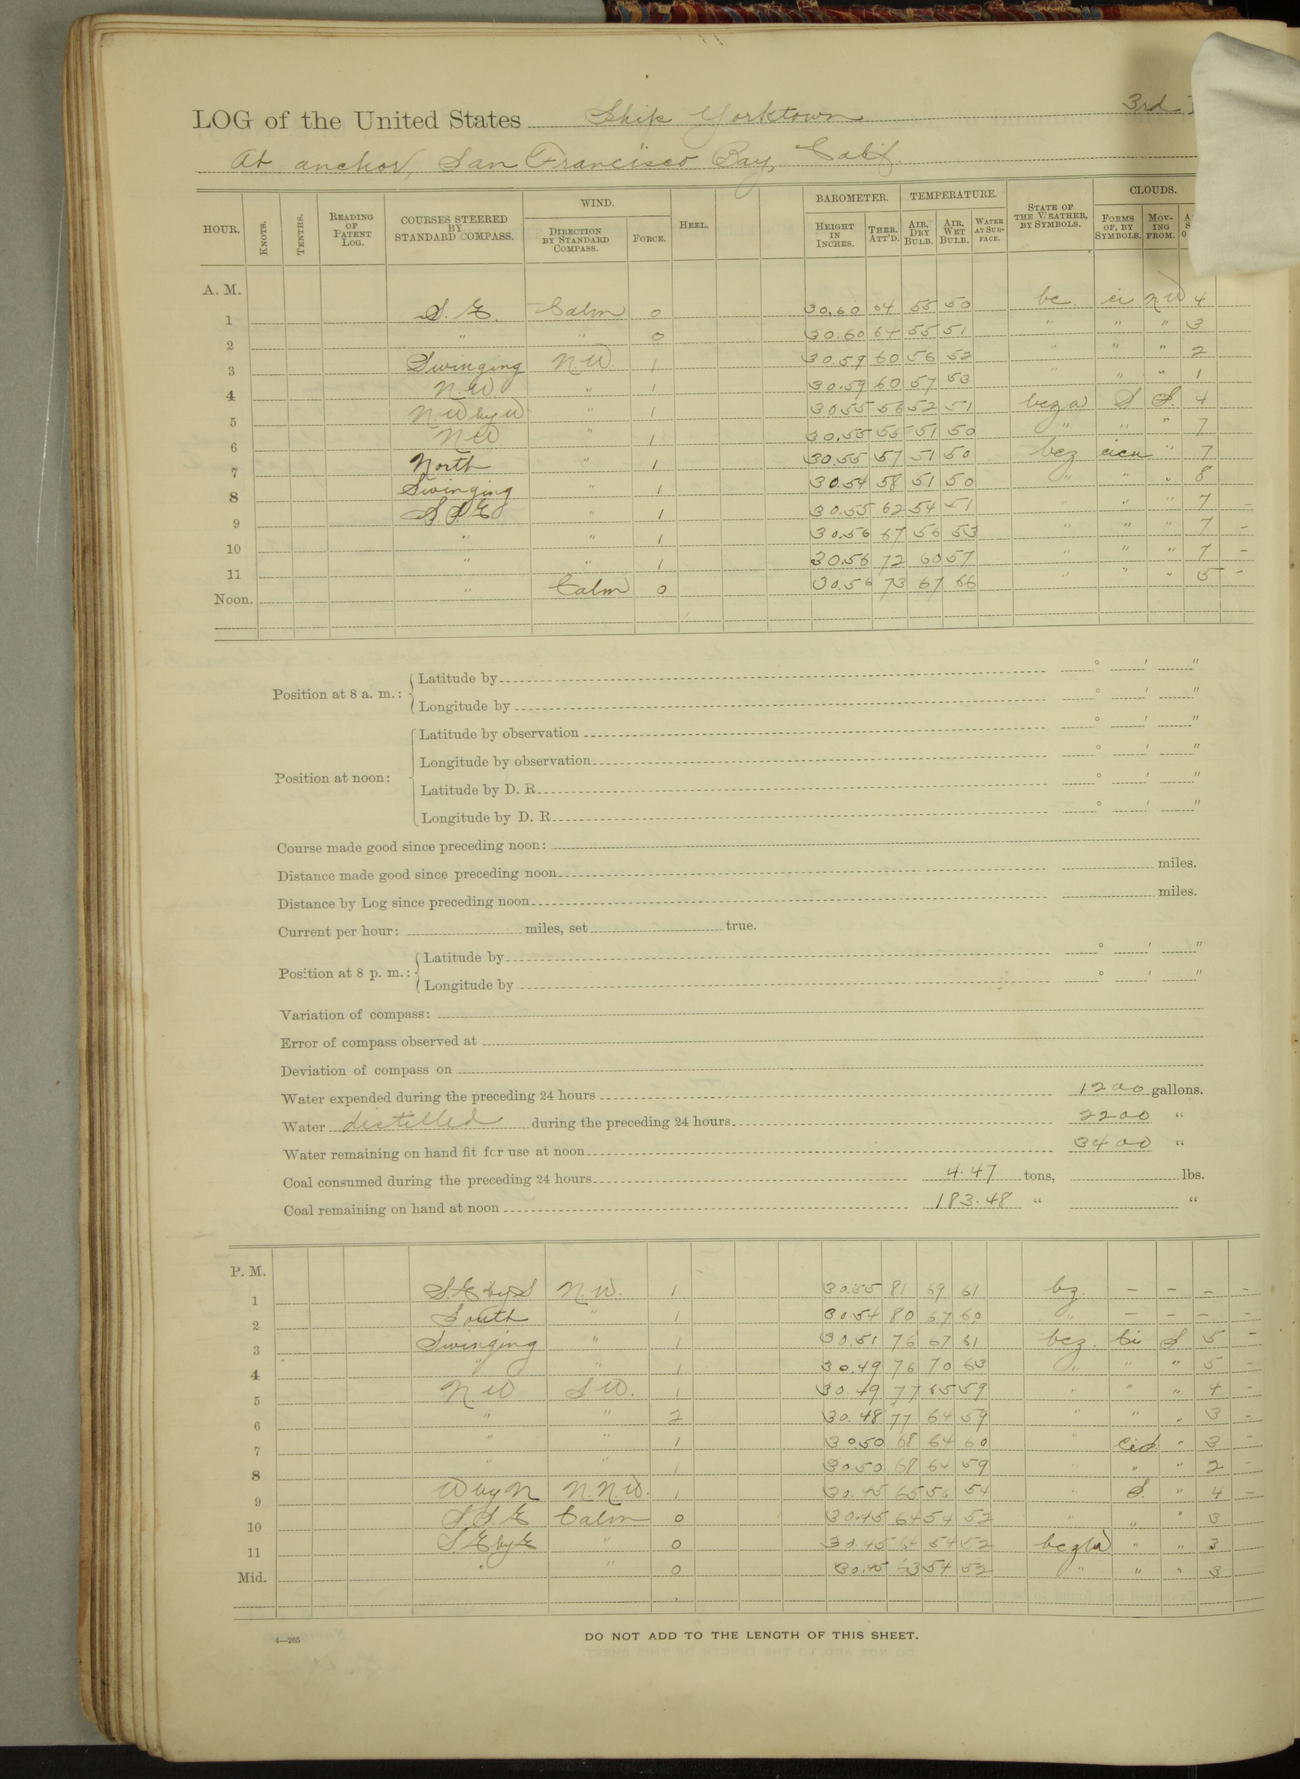 LOG of the United States Ship Yorktown 3rd
At anchor, San Francisco Bay, Calif.
HOUR. KNOTS. TENTHS. READING OF PATENT LOG. COURSES STEERED BY STANDARD COMPASS. WIND. DIRECTION BY STANDARD COMPASS. FORCE. HEEL. BAROMETER. HEIGHT IN INCHES. THER. ATT'D. TEMPERATURE. AIR, DRY BULB. AIR, WET BULB. WATER AT SURFACE. STATE OF THE WEATHER, BY SYMBOLS. CLOUDS. FORMS OF, BY SYMBOLS. MOVING FROM.
A. M.
1 S. E. Calm 0 30.60 64 55 50 bc. ci NW 4
2 " " 0 30.60 64 55 51 " " " 3
3 Swinging N.W. 1 30.59 60 56 52 " " " 2
4 N.W " 1 30.59 60 57 53 " " " 1
5 N.W by W " 1 30.55 56 52 51 S S. 4
6 N.W " 1 30.55 55 51 50 " " " 7
7 North " 1 30.55 57 51 50 bcz cicu " 7
8 Swinging " 1 30.54 58 51 50 " " " 8
9 S.S.E " 1 30.55 62 54 51 " " 7 -
10 " " 1 30.56 67 56 53 " " " 7 -
11 " " 1 30.56 72 60 57 " " " 7 -
Noon. " Calm 0 30.56 73 67 66 " " " 5 -
Position at 8 a. m.: Latitude by ° ' "
Longitude by ° ' "
Position at noon: Latitude by observation ° ' "
Longitude by observation ° ' "
Latitude by D. R. ° ' "
Longitude by D. R. ° ' "
Course made good since preceding noon:
Distance made good since preceding noon miles.
Distance by Log since preceding noon miles.
Current per hour: miles, set true.
Position at 8 p. m.: Latitude by ° ' "
Longitude by ° ' "
Variation of compass:
Error of compass observed at
Deviation of compass on
Water expended during the preceding 24 hours 1200 gallons.
Water distilled during the preceding 24 hours 2200 "
Water remaining on hand fit for use at noon 3400 "
Coal consumed during the preceding 24 hours 4.47 tons, lbs.
Coal remaining on hand at noon 183.48 " "
P. M.
1 S.E by S N.W. 1 30.55 81 69 61 bz. - - - -
2 South " 1 30.54 80 67 60 " - - - -
3 Swinging " 1 30.51 76 67 61 bcz. Ci S 5 -
4 " " 1 30.49 76 70 63 " " " 5 -
5 N.W S.W. 1 30.49 77 65 59 " " " 4 -
6 " " 2 30.48 77 64 59 " " " 3 -
7 " " 1 30.50 68 64 60 " CiS " 3 -
8 " " 1 30.50 68 64 59 " " " 2 -
9 W by N N.N.W. 1 30.45 65 56 54 " S. " 4 -
10 S.S.E Calm 0 30.45 64 54 52 " " " 3
11 S.E by E " 0 30.45 64 54 52 " " 3
Mid. " " 0 30.45 54 52 " " " 3
4—265
DO NOT ADD TO THE LENGTH OF THIS SHEET.